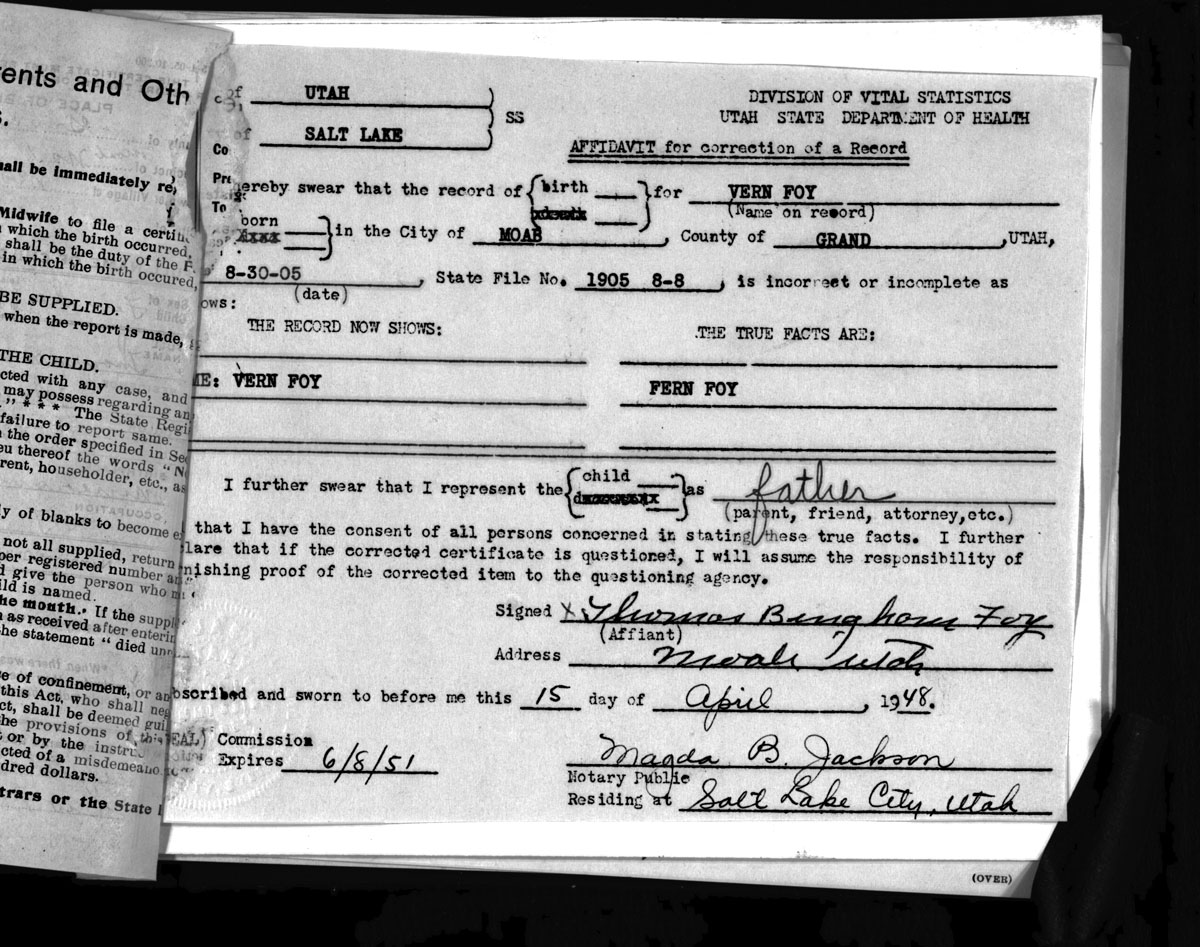 ents and Oth
s.
hall be immediately re
Midwife to file a certi
which the birth occurred,
shall be the duty of the
in which the birth occured,
BE SUPPLIED.
when the report is made,
THE CHILD.
cted with any case, and
may possess regarding an
" * * * The State Regi
failure to report same.
the order specified in Se
eu thereof the words "N
rent, householder, etc., as
ly of blanks to become e
not all supplied, return
per registered number an
d give the person who m
ild is named.
he month. If the suppl
as received after enterin
he statement "died un
e of confinement, or an
this Act, who shall neg
ct, shall be deemed guil
he provisions of this
t or by the instru
cted of a misdemeano
dred dollars.
trars or the State
of UTAH
of SALT LAKE
SS
Co
Pre
To
DIVISION OF VITAL STATISTICS
UTAH STATE DEPARTMENT OF HEALTH
AFFIDAVIT for correction of a Record
ereby swear that the record of birth for VERN FOY
(Name on record)
born in the City of MOAB, County of GRAND, UTAH,
8-30-05, State File No. 1905 8-8, is incorrect or incomplete as
(date)
ows:
THE RECORD NOW SHOWS: THE TRUE FACTS ARE:
ME: VERN FOY FERN FOY
I further swear that I represent the child as father
(parent, friend, attorney, etc.)
that I have the consent of all persons concerned in stating these true facts. I further
lare that if the corrected certificate is questioned, I will assume the responsibility of
nishing proof of the corrected item to the questioning agency.
Signed X Thomas Bingham Foy
(Affiant)
Address Moab Utah
bscribed and sworn to before me this 15 day of April, 1948.
EAL) Commission
Expires 6/8/51
Magda B. Jackson
Notary Public
Residing at Salt Lake City, Utah
(OVER)